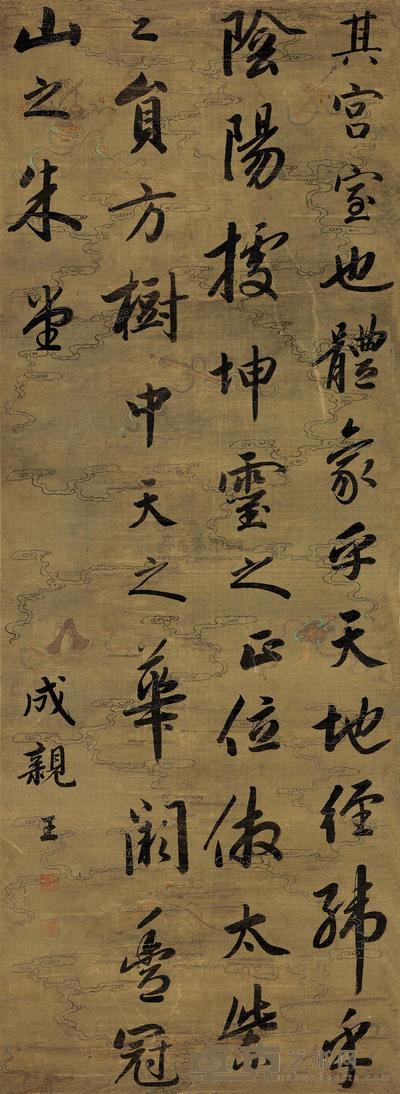 其宮室也體象乎天地徑緯乎
陰陽據坤靈之正位倣太紫
之員方樹中天之華闕豐冠
山之朱堂
成親王